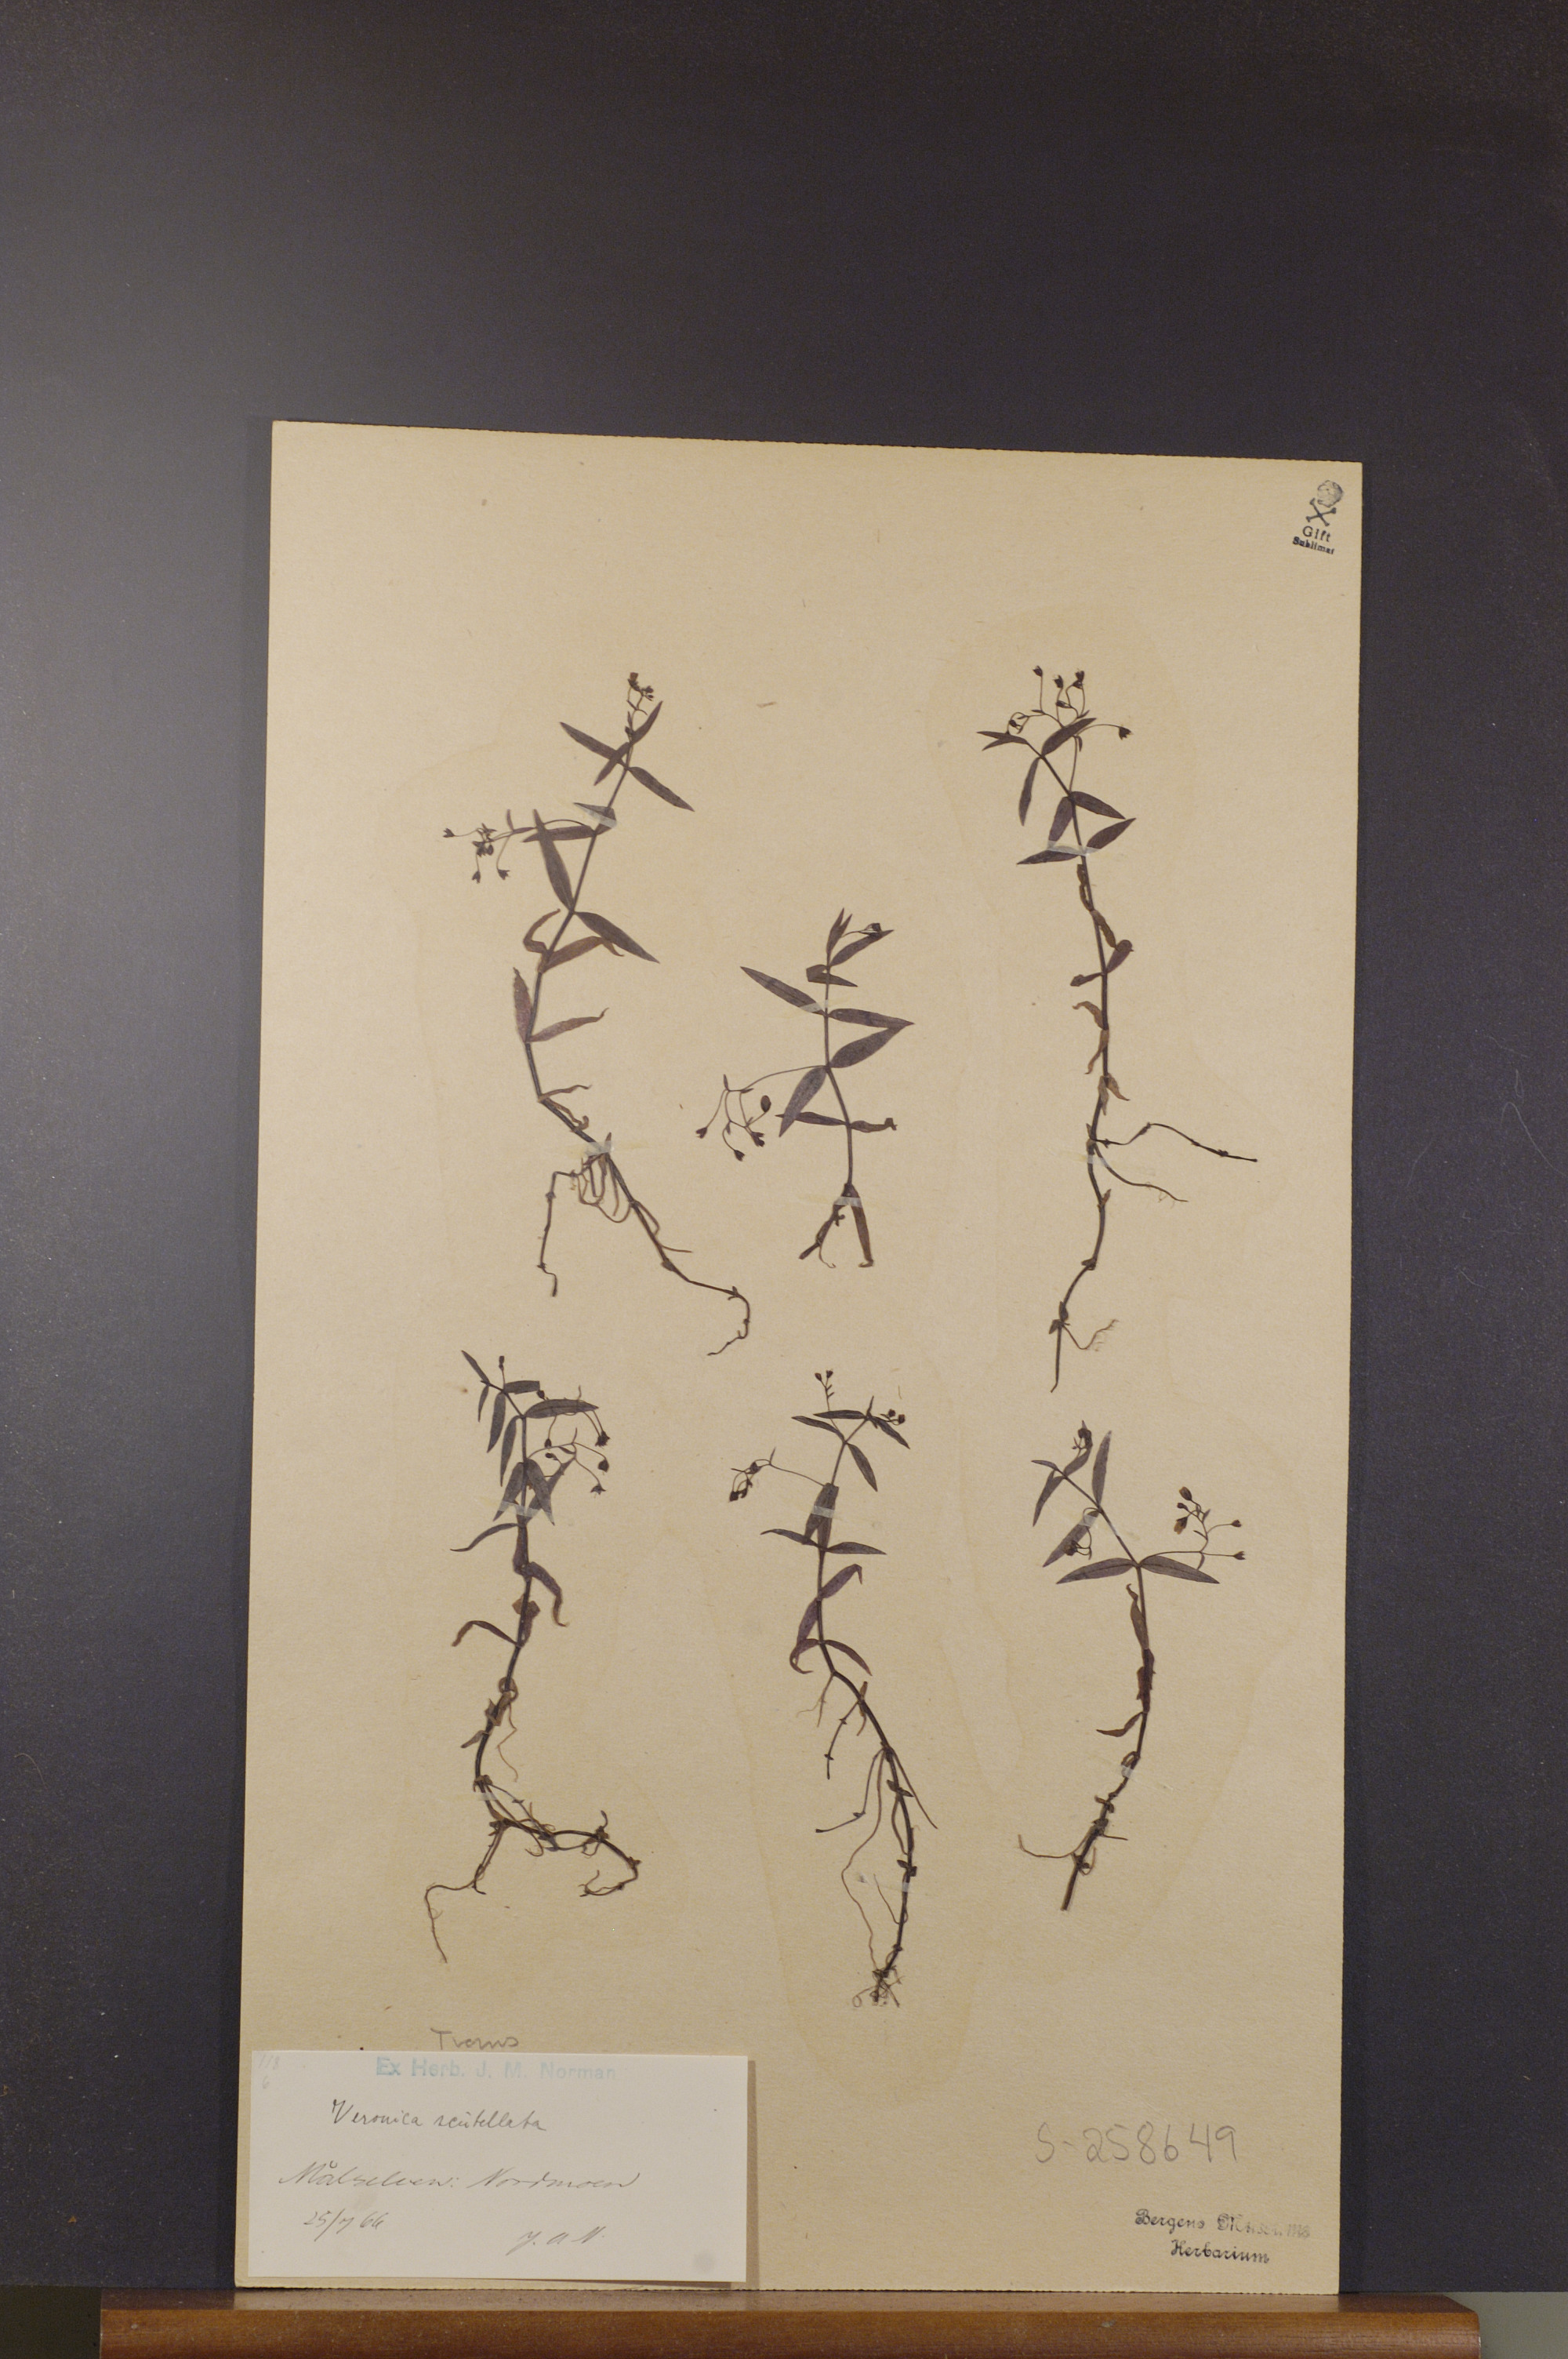 Gift
Sublimat
Troms
118
6
Ex Herb. J. M. Norman
Veronica scutellata
Målselven: Nordmoen
25/7 66
S-258649
Bergens Museums
Herbarium